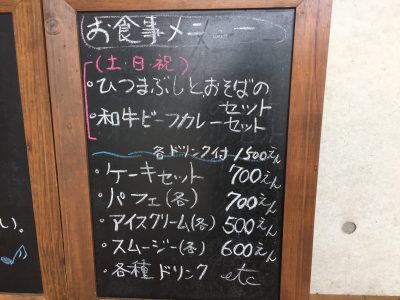 お食事メニュー
(土・日・祝)
・ひつまぶしとおそばの
セット
・和牛ビーフカレーセット
各ドリンク付 1500えん
・ケーキセット 700えん
・パフェ(各) 700えん
・アイスクリーム(各) 500えん
・スムージー(各) 600えん
・各種ドリンク etc
い。